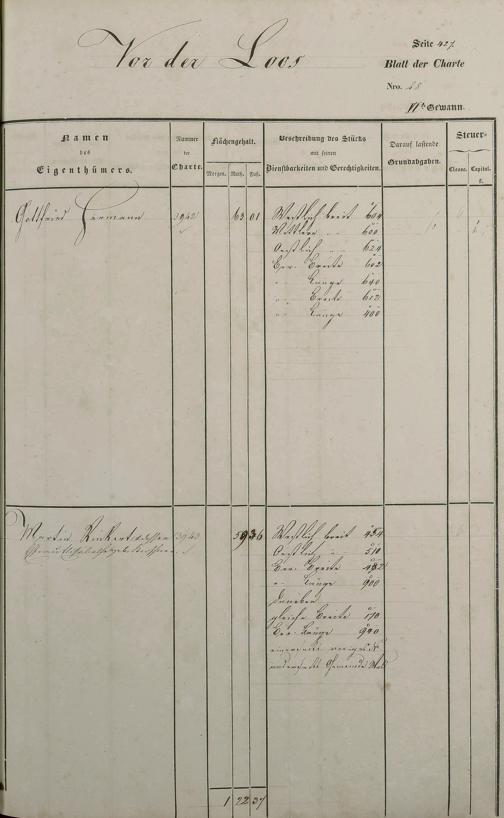 Vor der Loos
Seite 427
Blatt der Charte
Nro.
VI te Gewann.
Namen
des
Eigenthümers.
Nummer
der
Charte.
Flächengehalt.
Morgen. Ruth. Fuß.
Beschreibung des Stücks
mit seinen
Dienstbarkeiten und Gerechtigkeiten.
Darauf lastende
Grundabgaben.
Steuer-
Classe. Capital.
fl.
Gottfried Hermann 3942 63 01
Westlich breit 604
Mittlere " 600
Oestlich " 624
Ber. Breite 602
" Länge 640
" Breite 612
" Länge 400
Martin 3943 59 36
Westlich breit 454
Oestlich " 510
Ber. Breite 482
" Länge 900
daneben
gleiche Breite 170
Ber. Länge 940
1 22 37